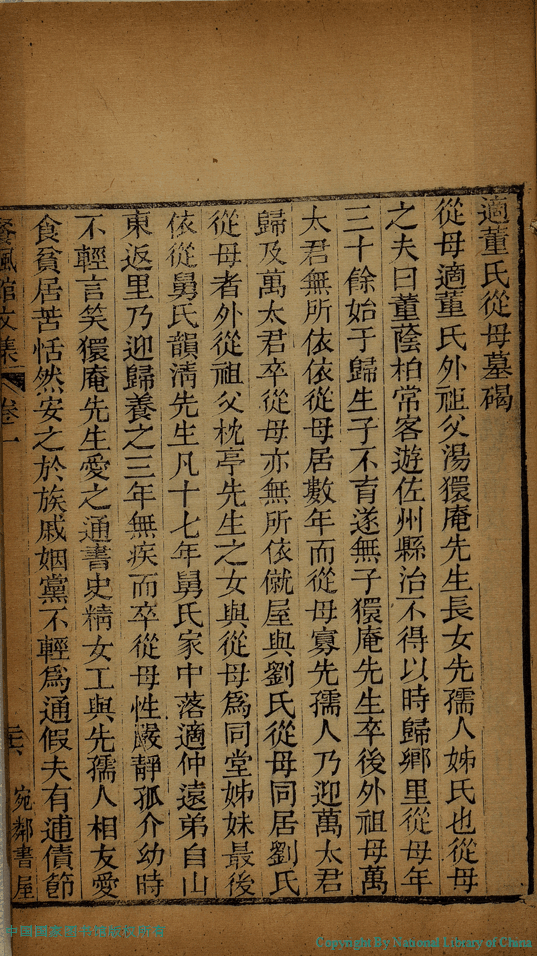 適董氏從母墓碣
從母適董氏外祖父湯獧庵先生長女先孺人姊氏也從母
之夫曰董蔭柏常客遊佐州縣治不得以時歸鄉里從母年
三十餘始于歸生子不育遂無子獧庵先生卒後外祖母萬
太君無所依依從母居數年而從母寡先孺人乃迎萬太君
歸及萬太君卒從母亦無所依僦屋與劉氏從母同居劉氏
從母者外從祖父枕亭先生之女與從母爲同堂姊妹最後
依從舅氏韻清先生凡十七年舅氏家中落適仲遠弟自山
東返里乃迎歸養之三年無疾而卒從母性嚴靜孤介幼時
不輕言笑獧庵先生愛之通書史精女工與先孺人相友愛
食貧居苦恬然安之於族戚姻黨不輕爲通假夫有逋債節
餐楓館文集 卷一 宛鄰書屋
中国国家图书馆版权所有
Copyright By National Library of China